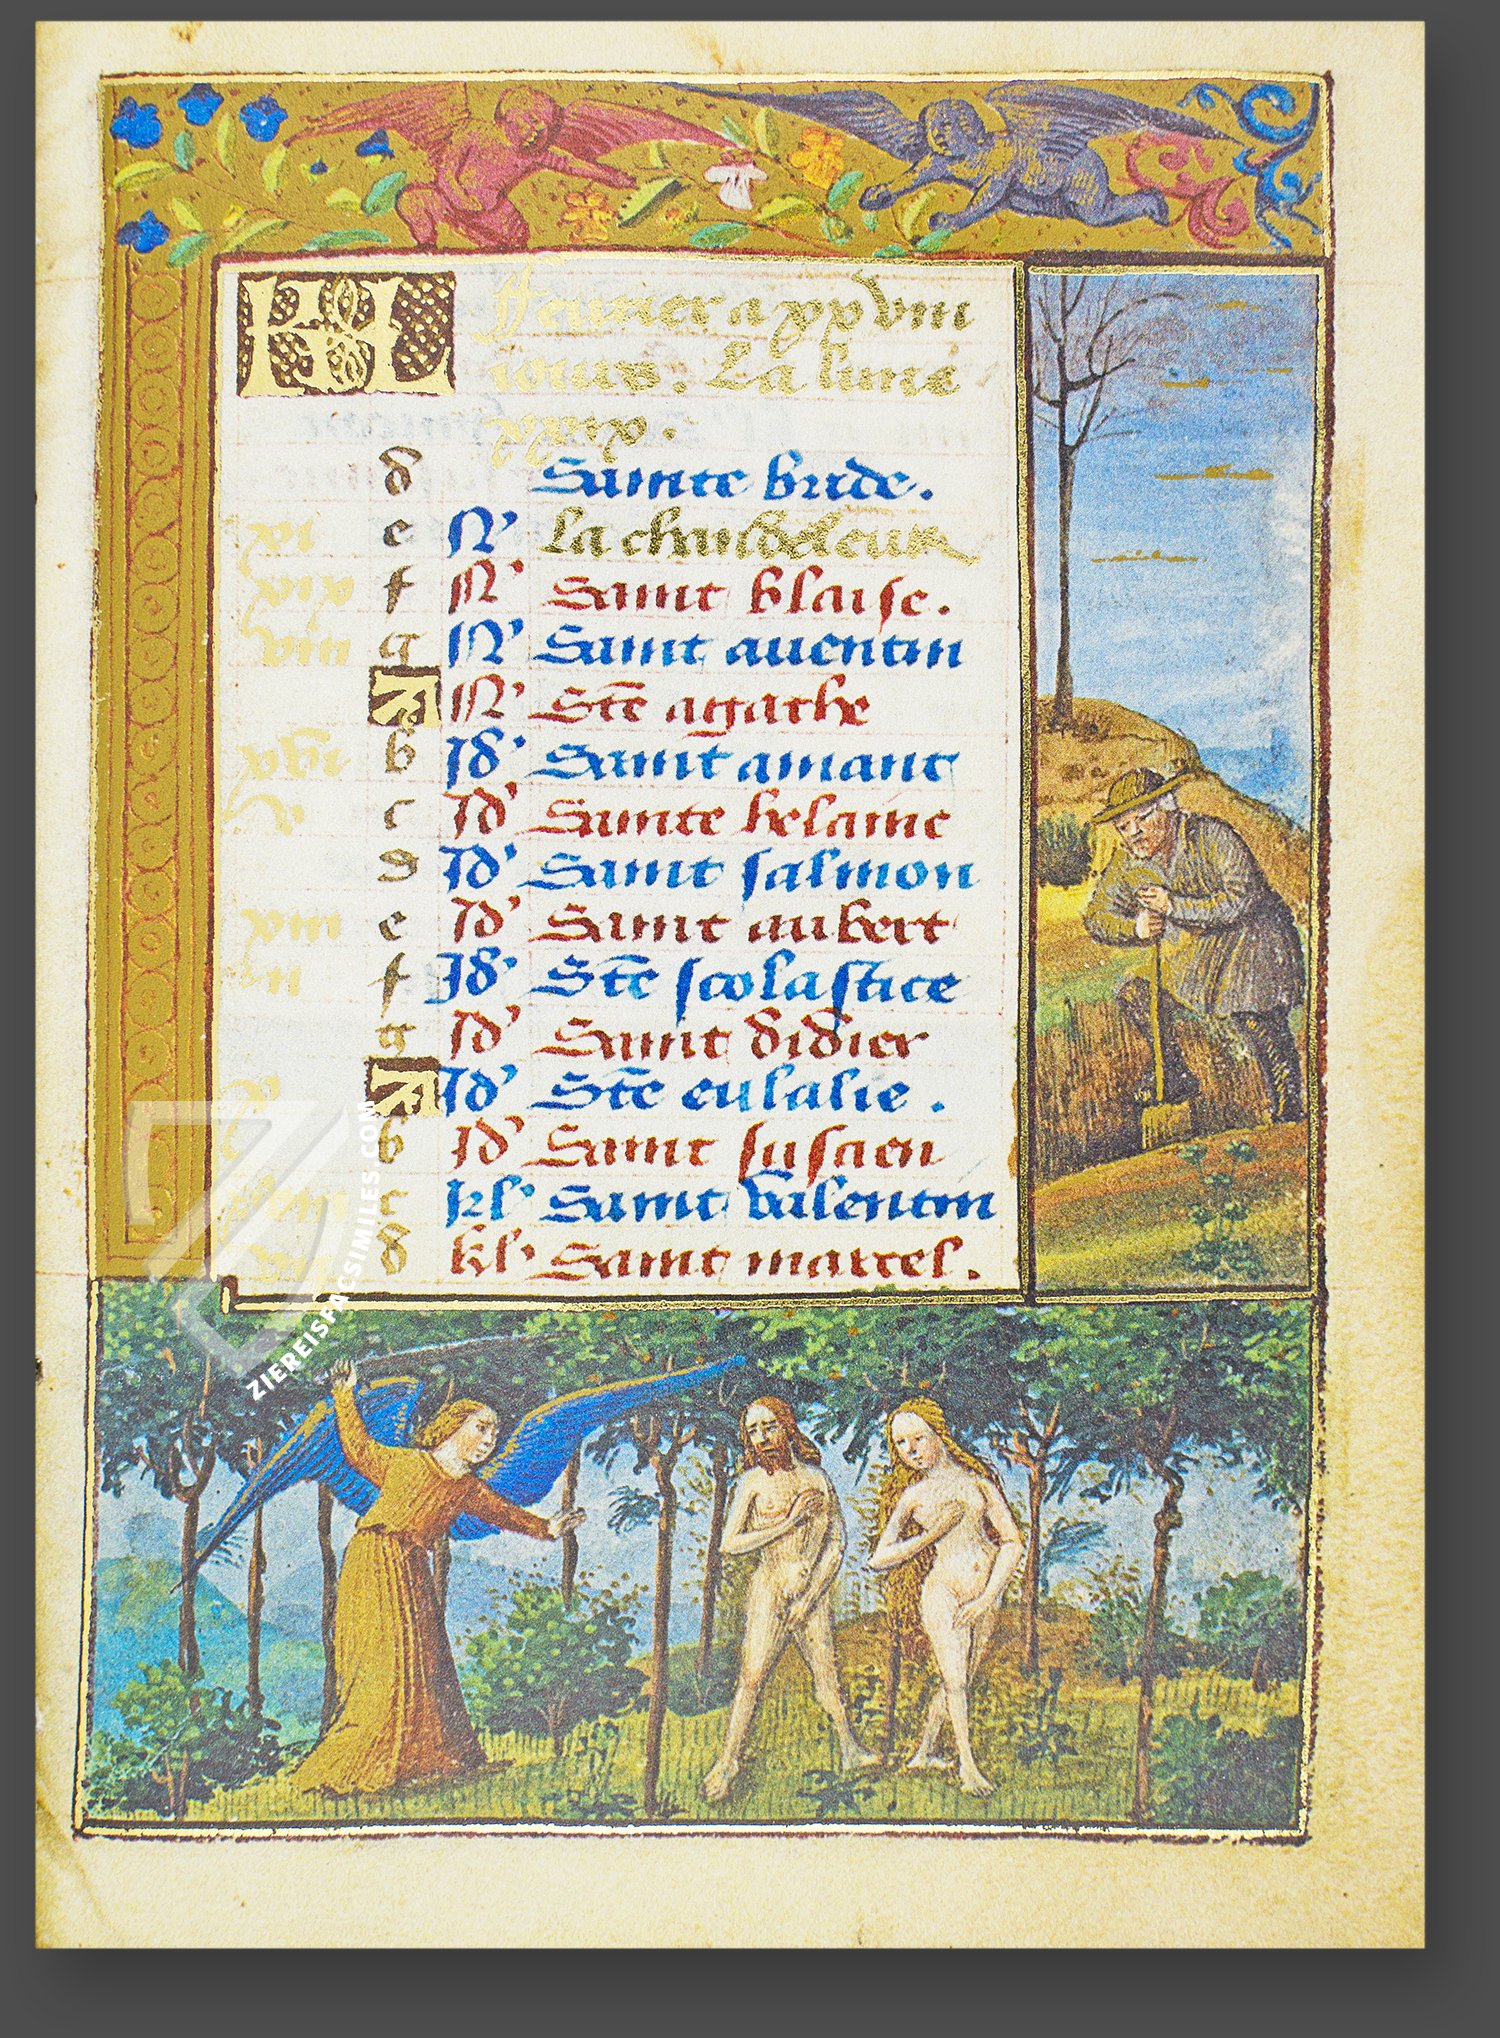 KL Feurier a xxviii
iours. La lune
xxix.
d Sainte bride.
xi e N' La chandeleur
xix f N' Saint blaise.
viii g N' Saint auentin
A N' Ste agathe
xvi b Id' Saint amant
v c Id' Sainte helaine
d Id' Saint salmon
xiii e Id' Saint aubert
ii f Id' Ste scolastice
g Id' Saint didier
x A Id' Ste eulalie.
b Id' Saint suscien
c kl' Saint valentin
d kl' Saint marcel.
ZIEREISFACSIMILES.COM